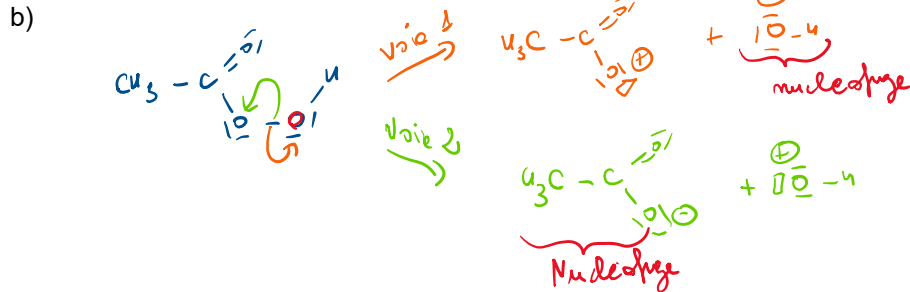 b)
CH3 - C
O
O - O
H
voie 1
H3C - C
O
O ⊕
+ O - H
nucleofuge
voie 2
H3C - C
O
O ⊖
+ ⊕ O - H
Nucleofuge